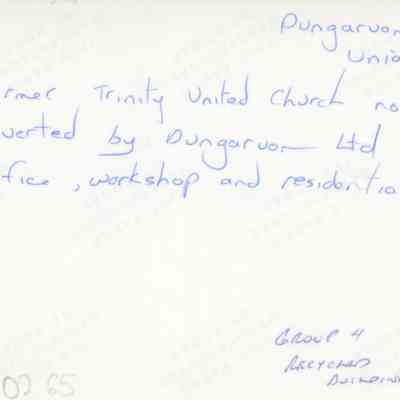 Dungarvon
Unio
rmer Trinity United Church no
verted by Dungarvon Ltd
fice, workshop and residentia
GROUP 4
RECYCLED
BUILDIN
02 65